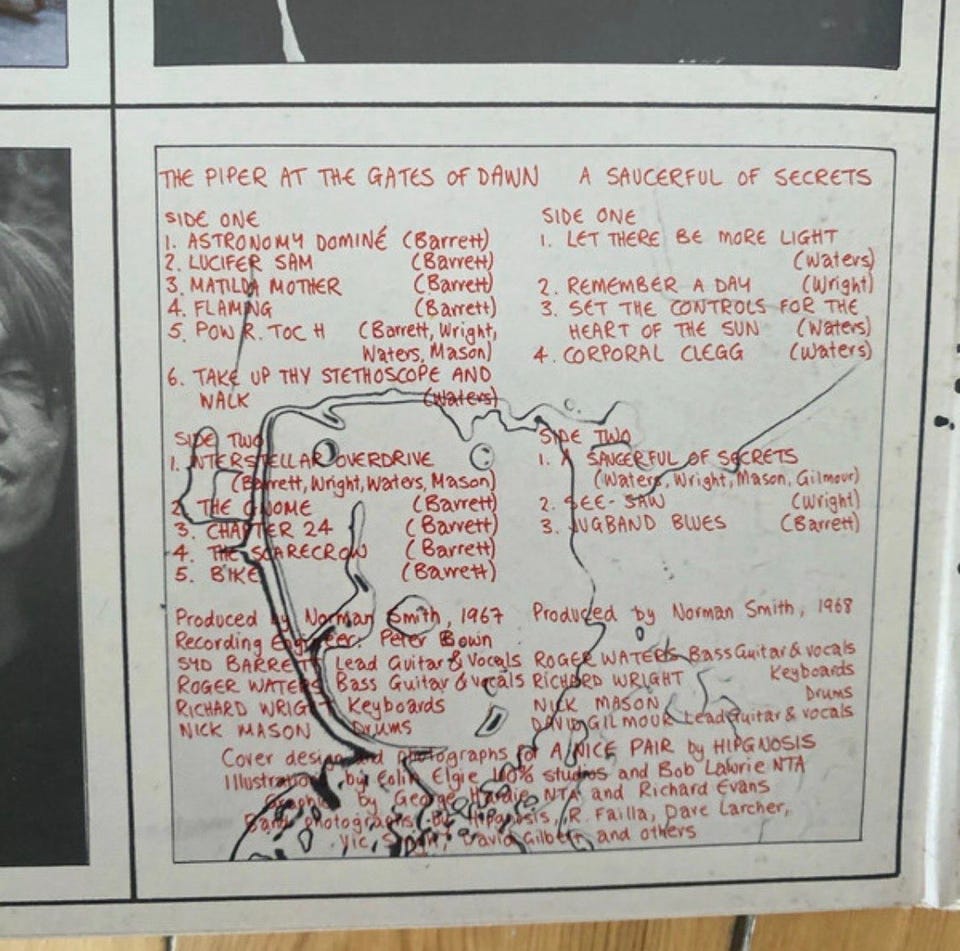 THE PIPER AT THE GATES OF DAWN
SIDE ONE
1. ASTRONOMY DOMINÉ (Barrett)
2. LUCIFER SAM (Barrett)
3. MATILDA MOTHER (Barrett)
4. FLAMING (Barrett)
5. POW R. TOC H (Barrett, Wright,
Waters, Mason)
6. TAKE UP THY STETHOSCOPE AND
WALK (Waters)
SIDE TWO
1. INTERSTELLAR OVERDRIVE
(Barrett, Wright, Waters, Mason)
2. THE GNOME (Barrett)
3. CHAPTER 24 (Barrett)
4. THE SCARECROW (Barrett)
5. BIKE (Barrett)
Produced by Norman Smith, 1967
Recording Engineer: Peter Bown
SYD BARRETT Lead Guitar & Vocals
ROGER WATERS Bass Guitar & vocals
RICHARD WRIGHT Keyboards
NICK MASON Drums
A SAUCERFUL OF SECRETS
SIDE ONE
1. LET THERE BE MORE LIGHT
(Waters)
2. REMEMBER A DAY (Wright)
3. SET THE CONTROLS FOR THE
HEART OF THE SUN (Waters)
4. CORPORAL CLEGG (Waters)
SIDE TWO
1. A SAUCERFUL OF SECRETS
(Waters, Wright, Mason, Gilmour)
2. SEE-SAW (Wright)
3. JUGBAND BLUES (Barrett)
Produced by Norman Smith, 1968
ROGER WATERS Bass Guitar & vocals
RICHARD WRIGHT Keyboards
NICK MASON Drums
DAVID GILMOUR Lead Guitar & vocals
Cover design and photographs for A NICE PAIR by HIPGNOSIS
Illustrations by Colin Elgie 100% studios and Bob Lawrie NTA
Graphics by George Hardie NTA and Richard Evans
Band photographs by Hipgnosis, R. Failla, Dave Larcher,
Vic David Gilbert and others